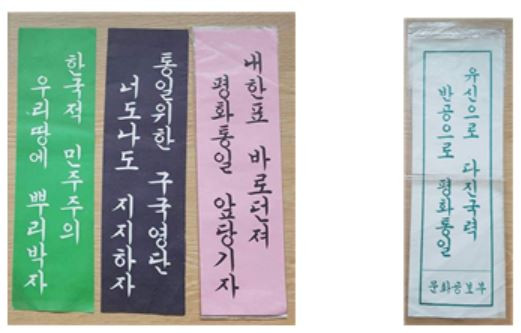 한국적 민주주의
우리땅에 뿌리박자
통일위한 구국영단
너도나도 지지하자
내한표 바로던져
평화통일 앞당기자
유신으로 다진국력
반공으로 평화통일
문화공보부